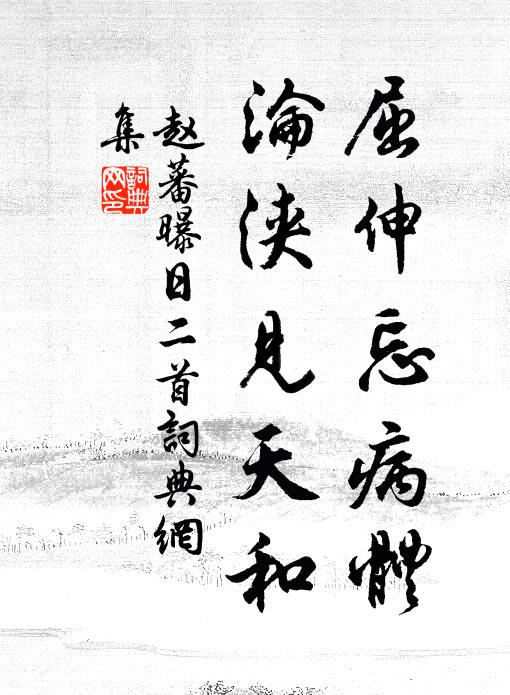 屈伸忘病體
淪浹見天和
赵蕃曝日二首詞典網
集
詞典網印